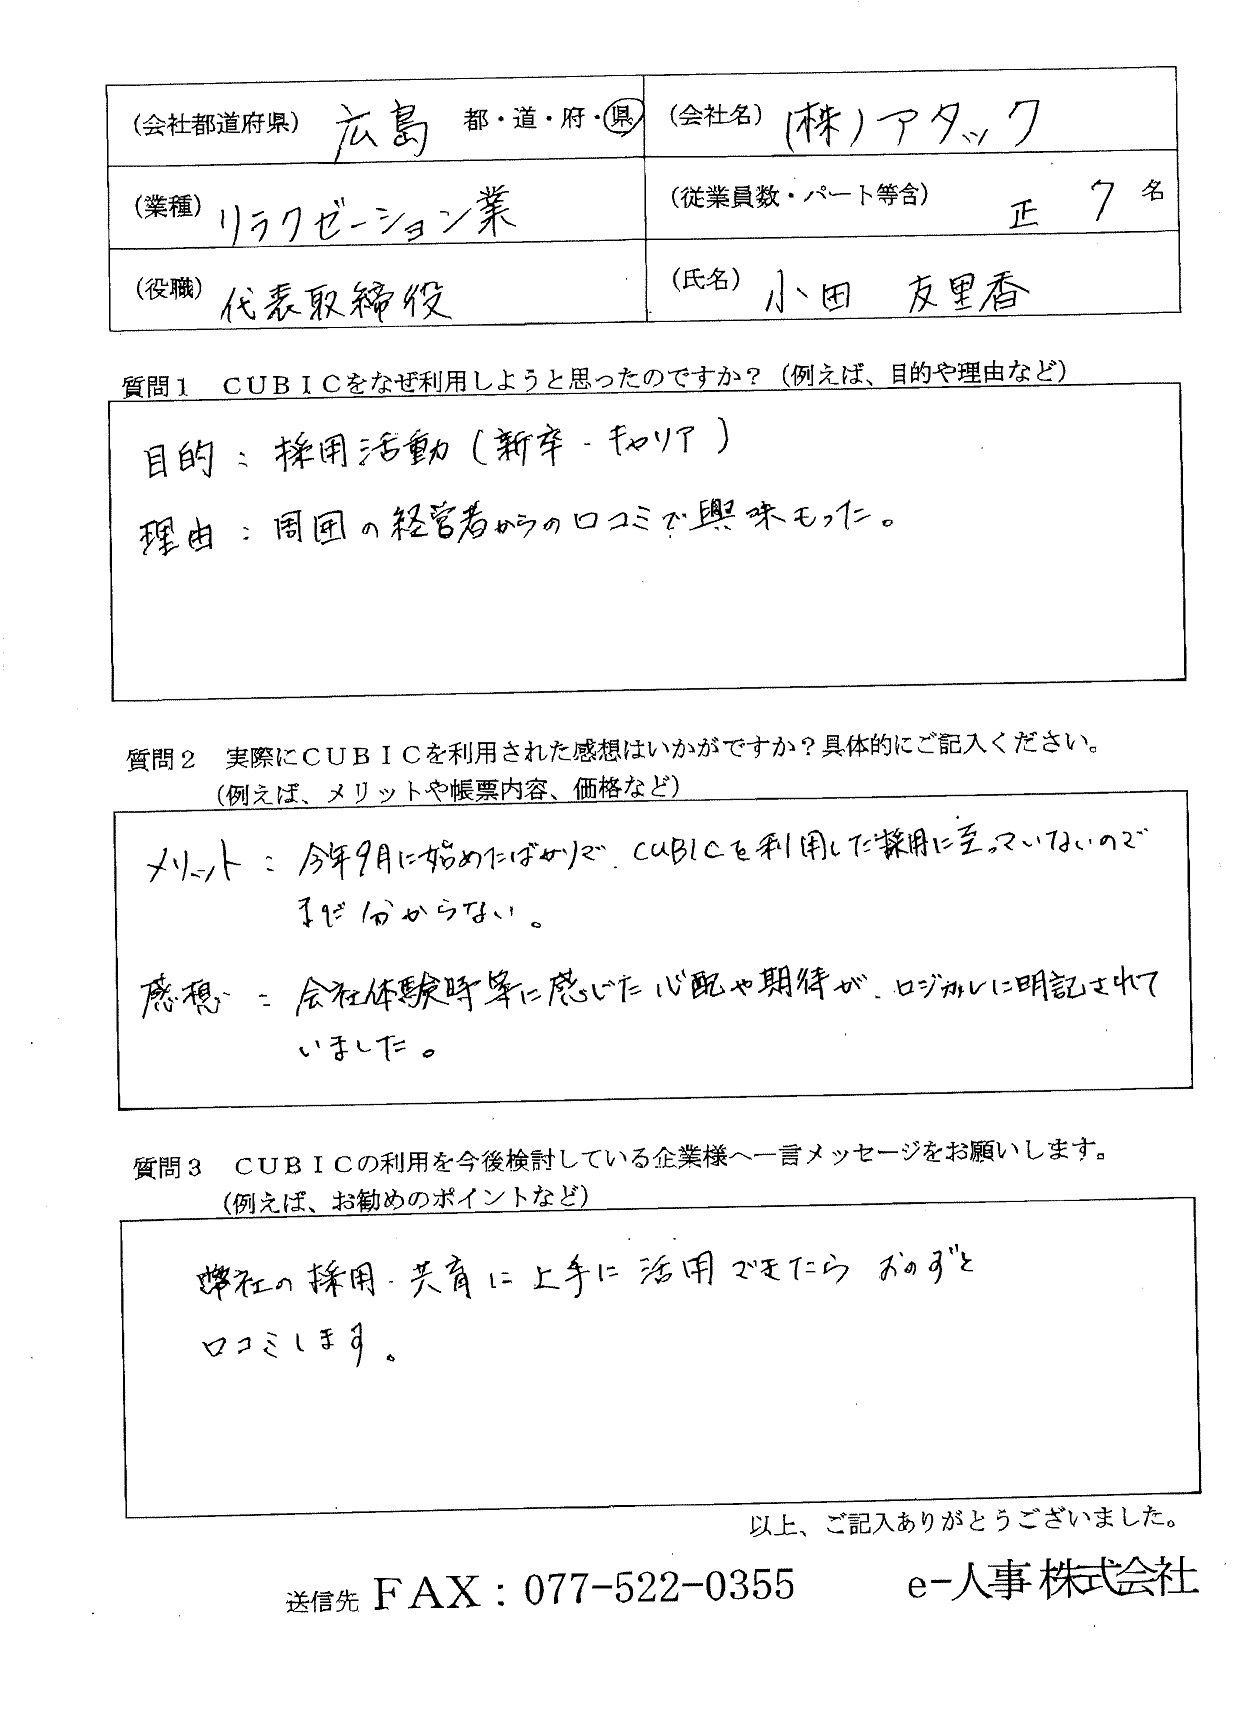 (会社都道府県) 広島 都・道・府・県 (会社名) (株)アタック
(業種) リラクゼーション業 (従業員数・パート等含) 正 7 名
(役職) 代表取締役 (氏名) 小田 友里香
質問１ ＣＵＢＩＣをなぜ利用しようと思ったのですか？（例えば、目的や理由など）
目的：採用活動(新卒・キャリア)
理由：周囲の経営者からの口コミで興味もった。
質問２ 実際にＣＵＢＩＣを利用された感想はいかがですか？具体的にご記入ください。
（例えば、メリットや帳票内容、価格など）
メリット：今年9月に始めたばかりで、CUBICを利用した採用に至っていないので
まだ分からない。
感想：会社体験時等に感じた心配や期待が、ロジカルに明記されて
いました。
質問３ ＣＵＢＩＣの利用を今後検討している企業様へ一言メッセージをお願いします。
（例えば、お勧めのポイントなど）
弊社の採用・共育に上手に活用できたらおのずと
口コミします。
以上、ご記入ありがとうございました。
送信先 ＦＡＸ：077-522-0355 e-人事 株式会社